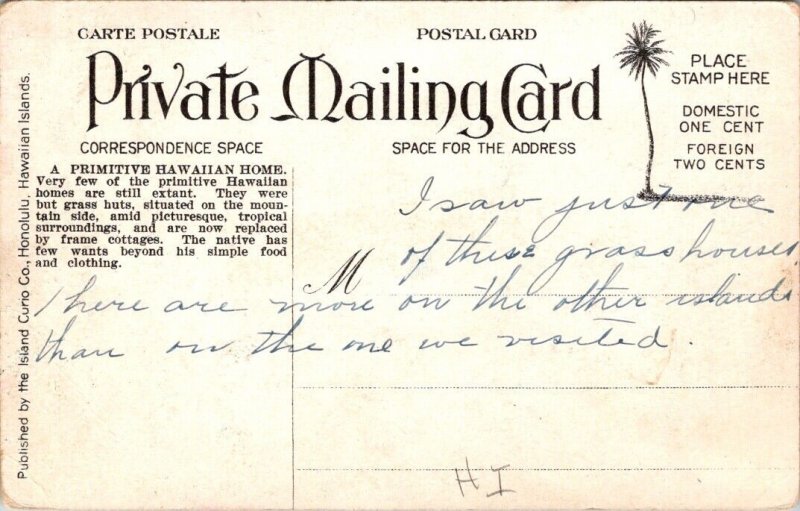 CARTE POSTALE
POSTAL CARD
Private Mailing Card
PLACE
STAMP HERE
DOMESTIC
ONE CENT
FOREIGN
TWO CENTS
CORRESPONDENCE SPACE
SPACE FOR THE ADDRESS
A PRIMITIVE HAWAIIAN HOME.
Very few of the primitive Hawaiian
homes are still extant. They were
but grass huts, situated on the moun-
tain side, amid picturesque, tropical
surroundings, and are now replaced
by frame cottages. The native has
few wants beyond his simple food
and clothing.
M
I saw just one
of these grass houses,
There are more on the other islands
than on the one we visited.
HI
Published by the Island Curio Co., Honolulu, Hawaiian Islands.